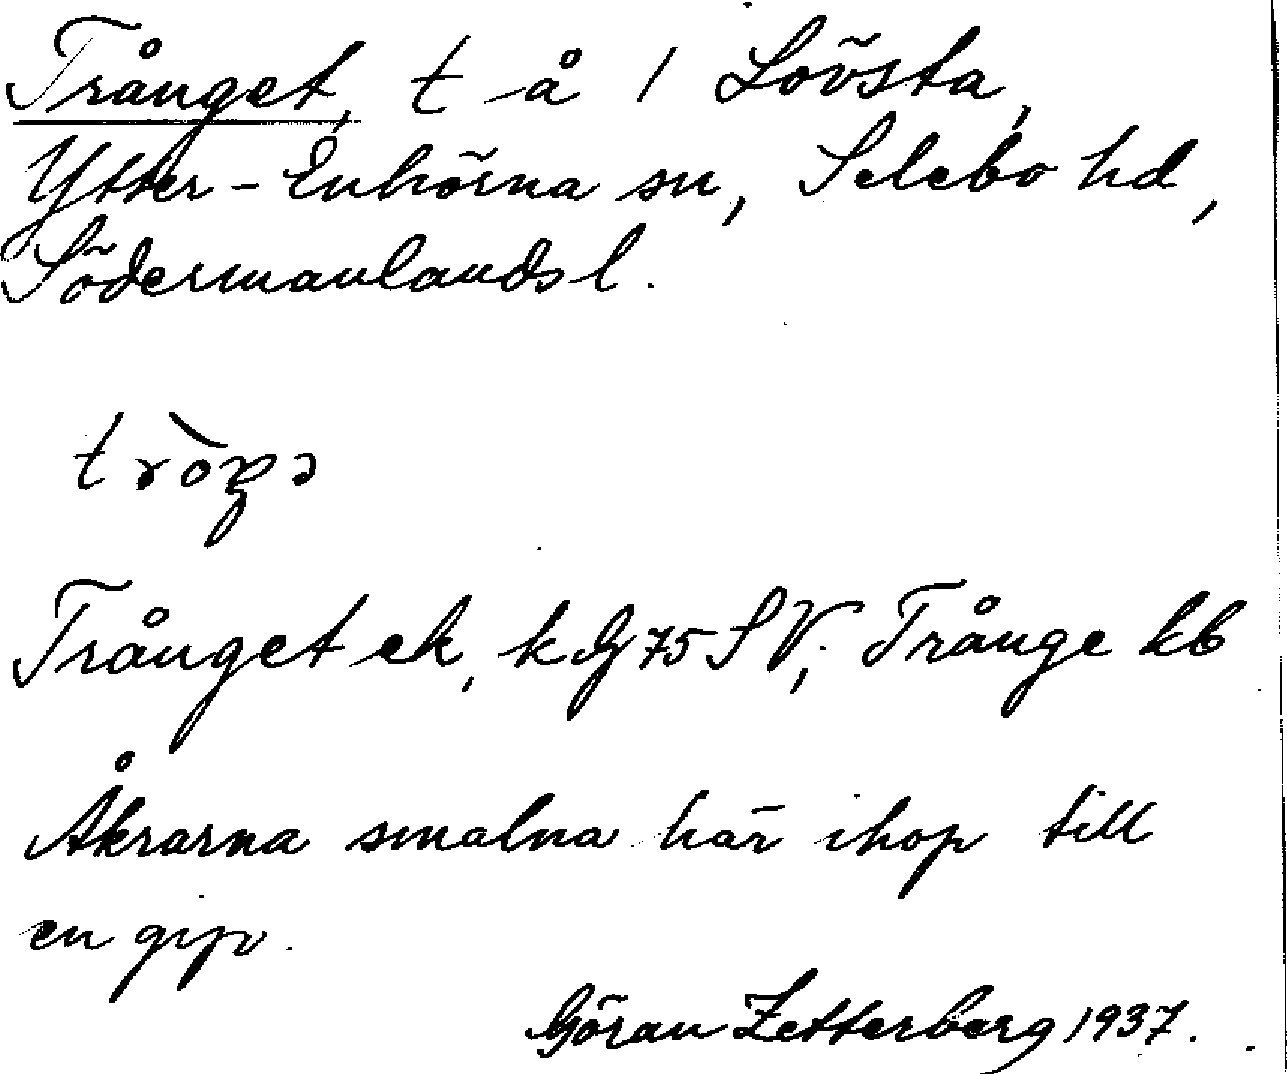 Trånget, t å / Lövsta,
Ytter-Enhörna sn, Selebo hd,
Södermanlands l.
tròŋə
Trånget ek, k G 75 SV; Trånge kb
Åkrarna smalna här ihop till
en
Göran Zetterberg 1937.